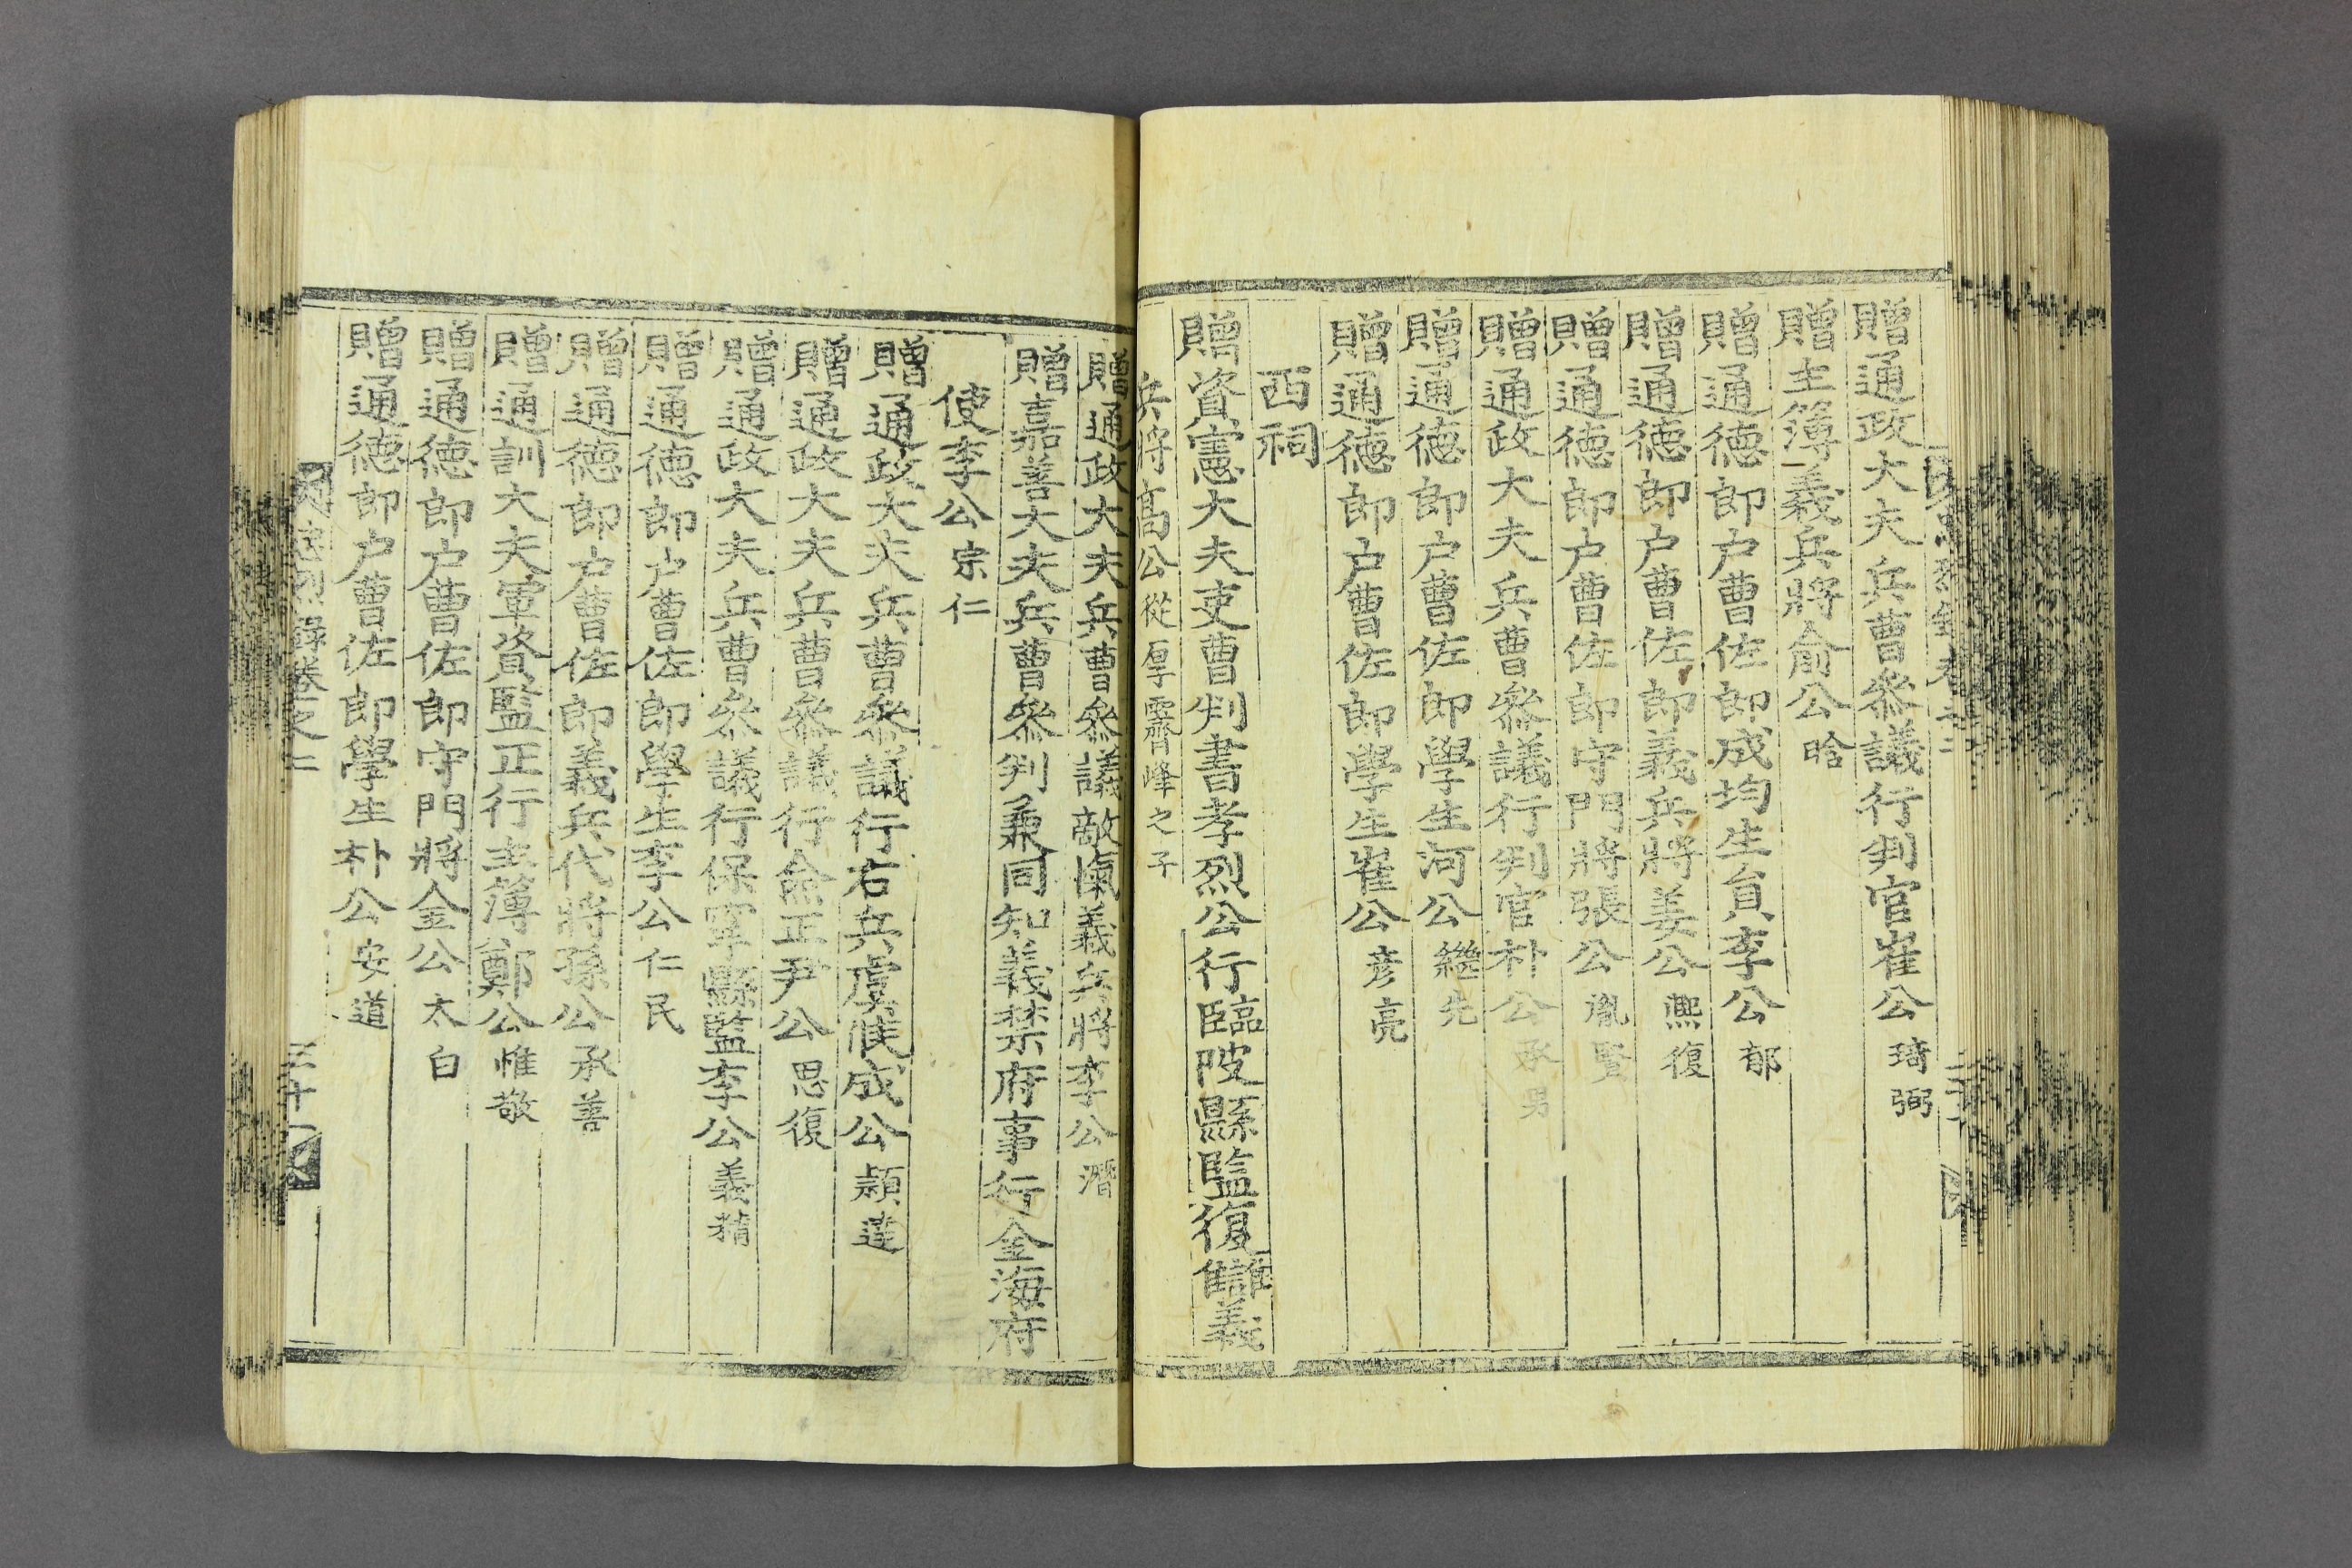 贈通政大夫兵曹參議行判官崔公琦弼
贈主簿義兵將俞公晗
贈通德郎戶曹佐郎成均生員李公郁
贈通德郎戶曹佐郎義兵將姜公熙復
贈通德郎戶曹佐郎守門將張公胤賢
贈通政大夫兵曹參議行判官朴公承男
贈通德郎戶曹佐郎學生河公繼先
贈通德郎戶曹佐郎學生崔公彦亮
西祠
贈資憲大夫吏曹判書孝烈公行臨陂縣監復讎義
兵將高公從厚霽峰之子
贈通政大夫兵曹參議敵愾義兵將李公潛
贈嘉善大夫兵曹參判兼同知義禁府事行金海府
使李公宗仁
贈通政大夫兵曹參議行右兵虞候成公頴達
贈通政大夫兵曹參議行僉正尹公思復
贈通政大夫兵曹參議行保寧縣監李公義精
贈通德郎戶曹佐郎學生李公仁民
贈通德郎戶曹佐郎義兵代將孫公承善
贈通訓大夫軍資監正行主簿鄭公惟敬
贈通德郎戶曹佐郎守門將金公太白
贈通德郎戶曹佐郎學生朴公安道
忠烈錄卷之二 三十一